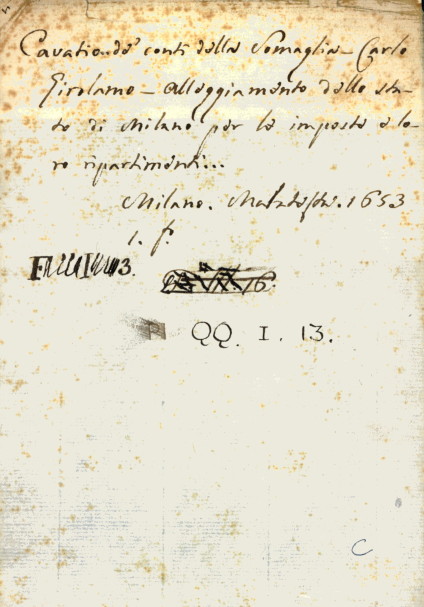 Cavatio de' conti della Somaglia - Carlo
Girolamo - alloggiamento dello sta-
to di Milano per le imposte e lo-
ro ripartimenti...
Milano. Malatesta. 1653
1. f.
13.
16.
QQ. I. 13.
C